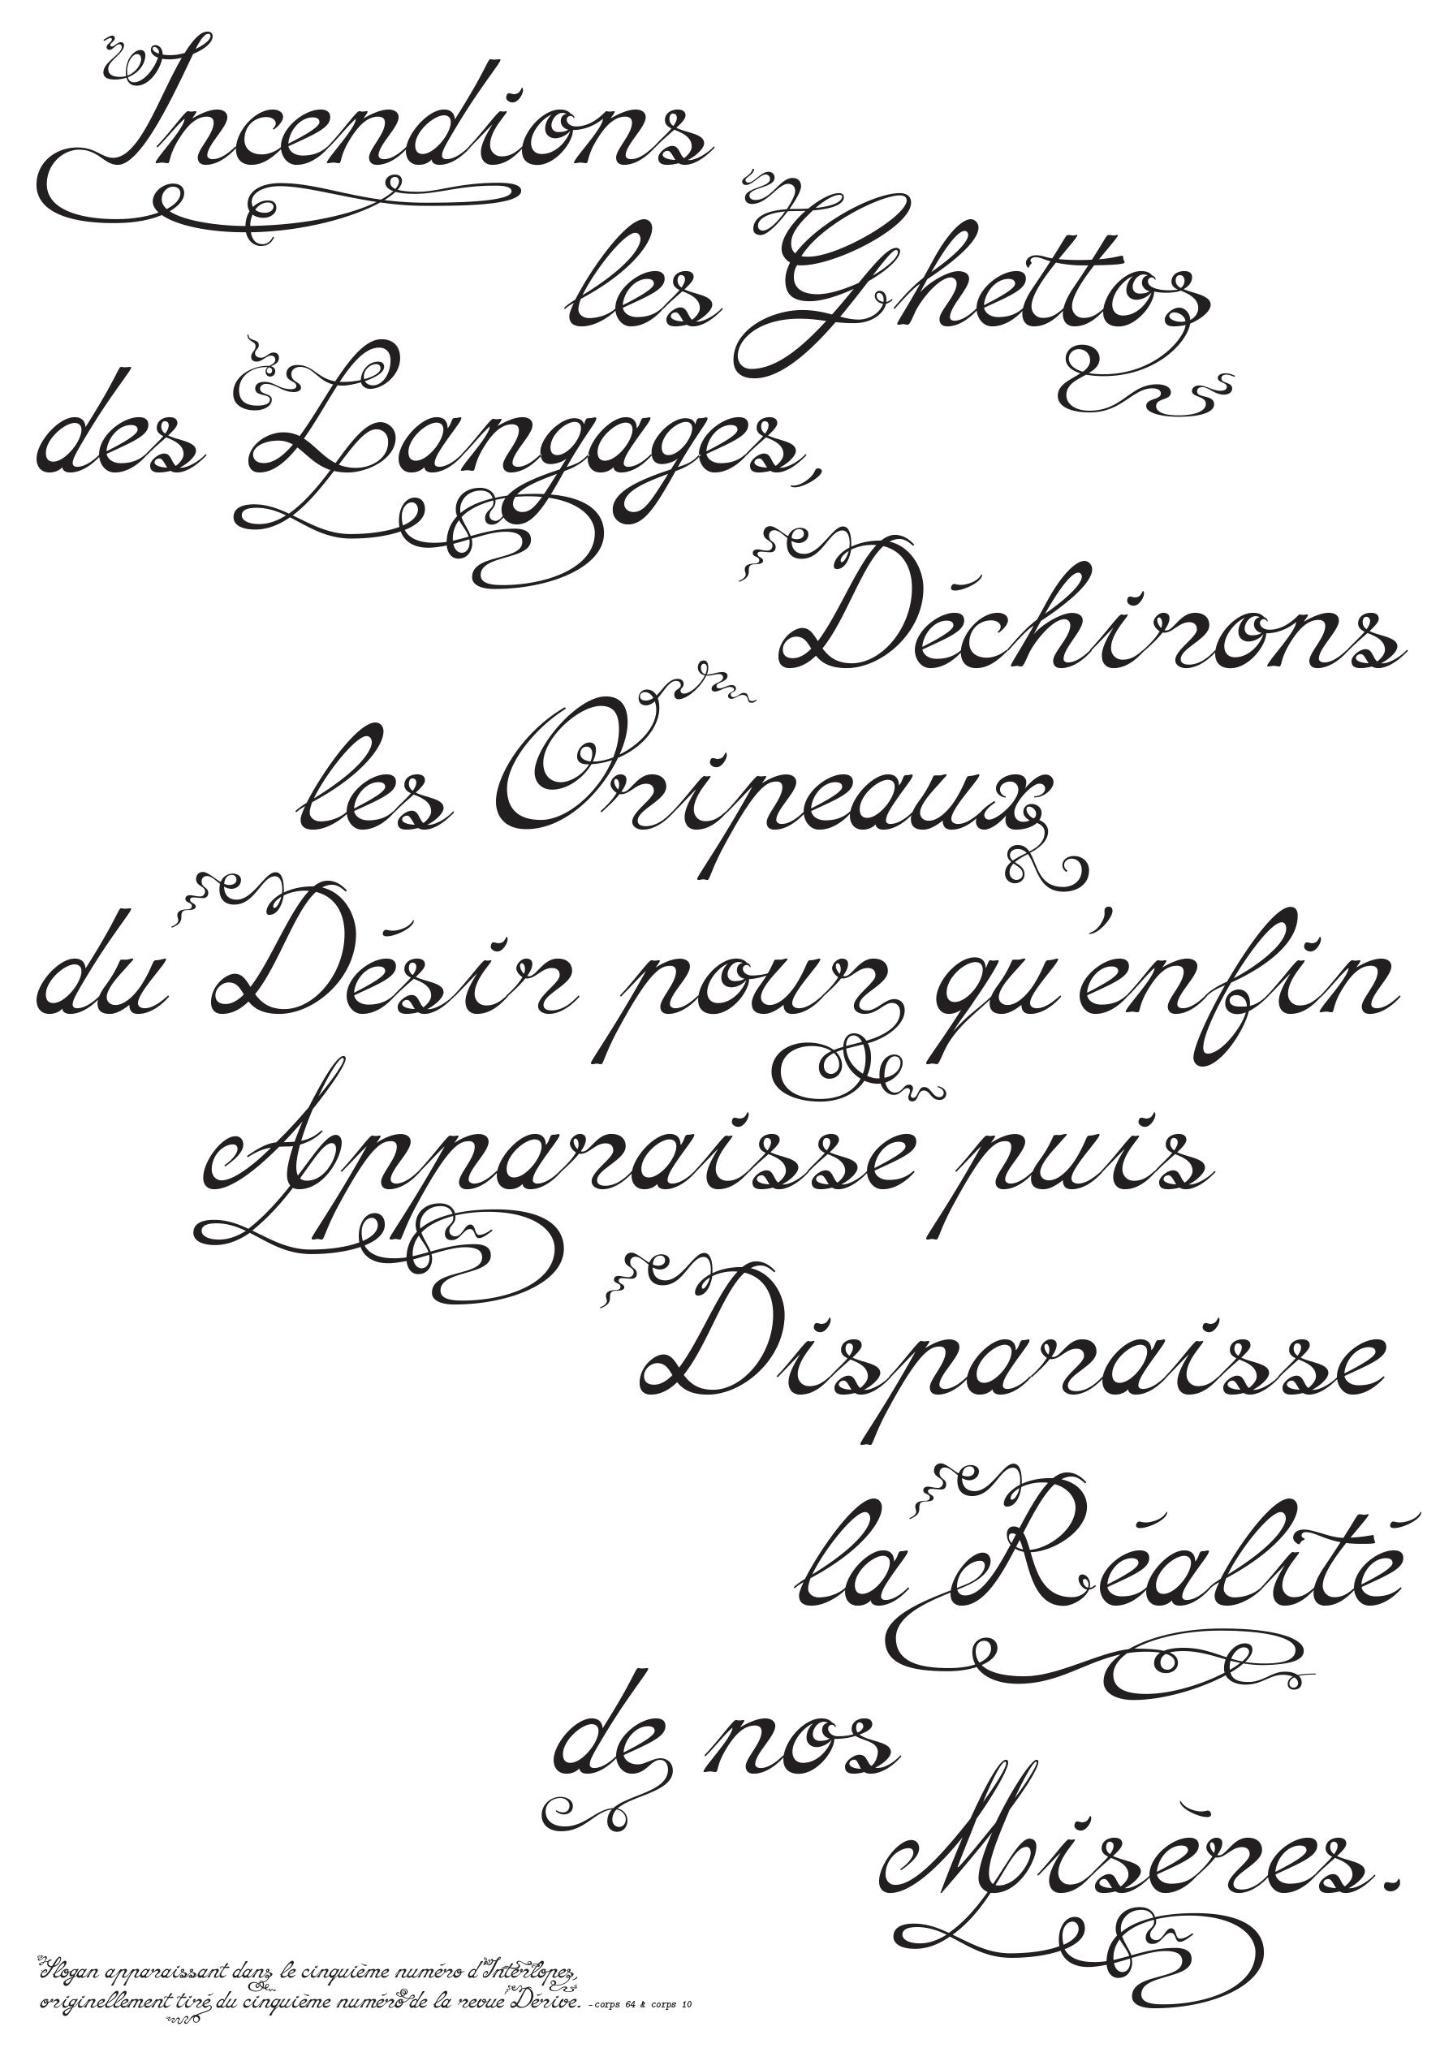 Incendions
les Ghettos
des Langages,
Déchirons
les Oripeaux
du Désir pour qu'enfin
Apparaisse puis
Disparaisse
la Réalité
de nos
Misères.
Slogan apparaissant dans le cinquième numéro d'Interlopes,
originellement tiré du cinquième numéro de la revue Dérive. - corps 64 & corps 10